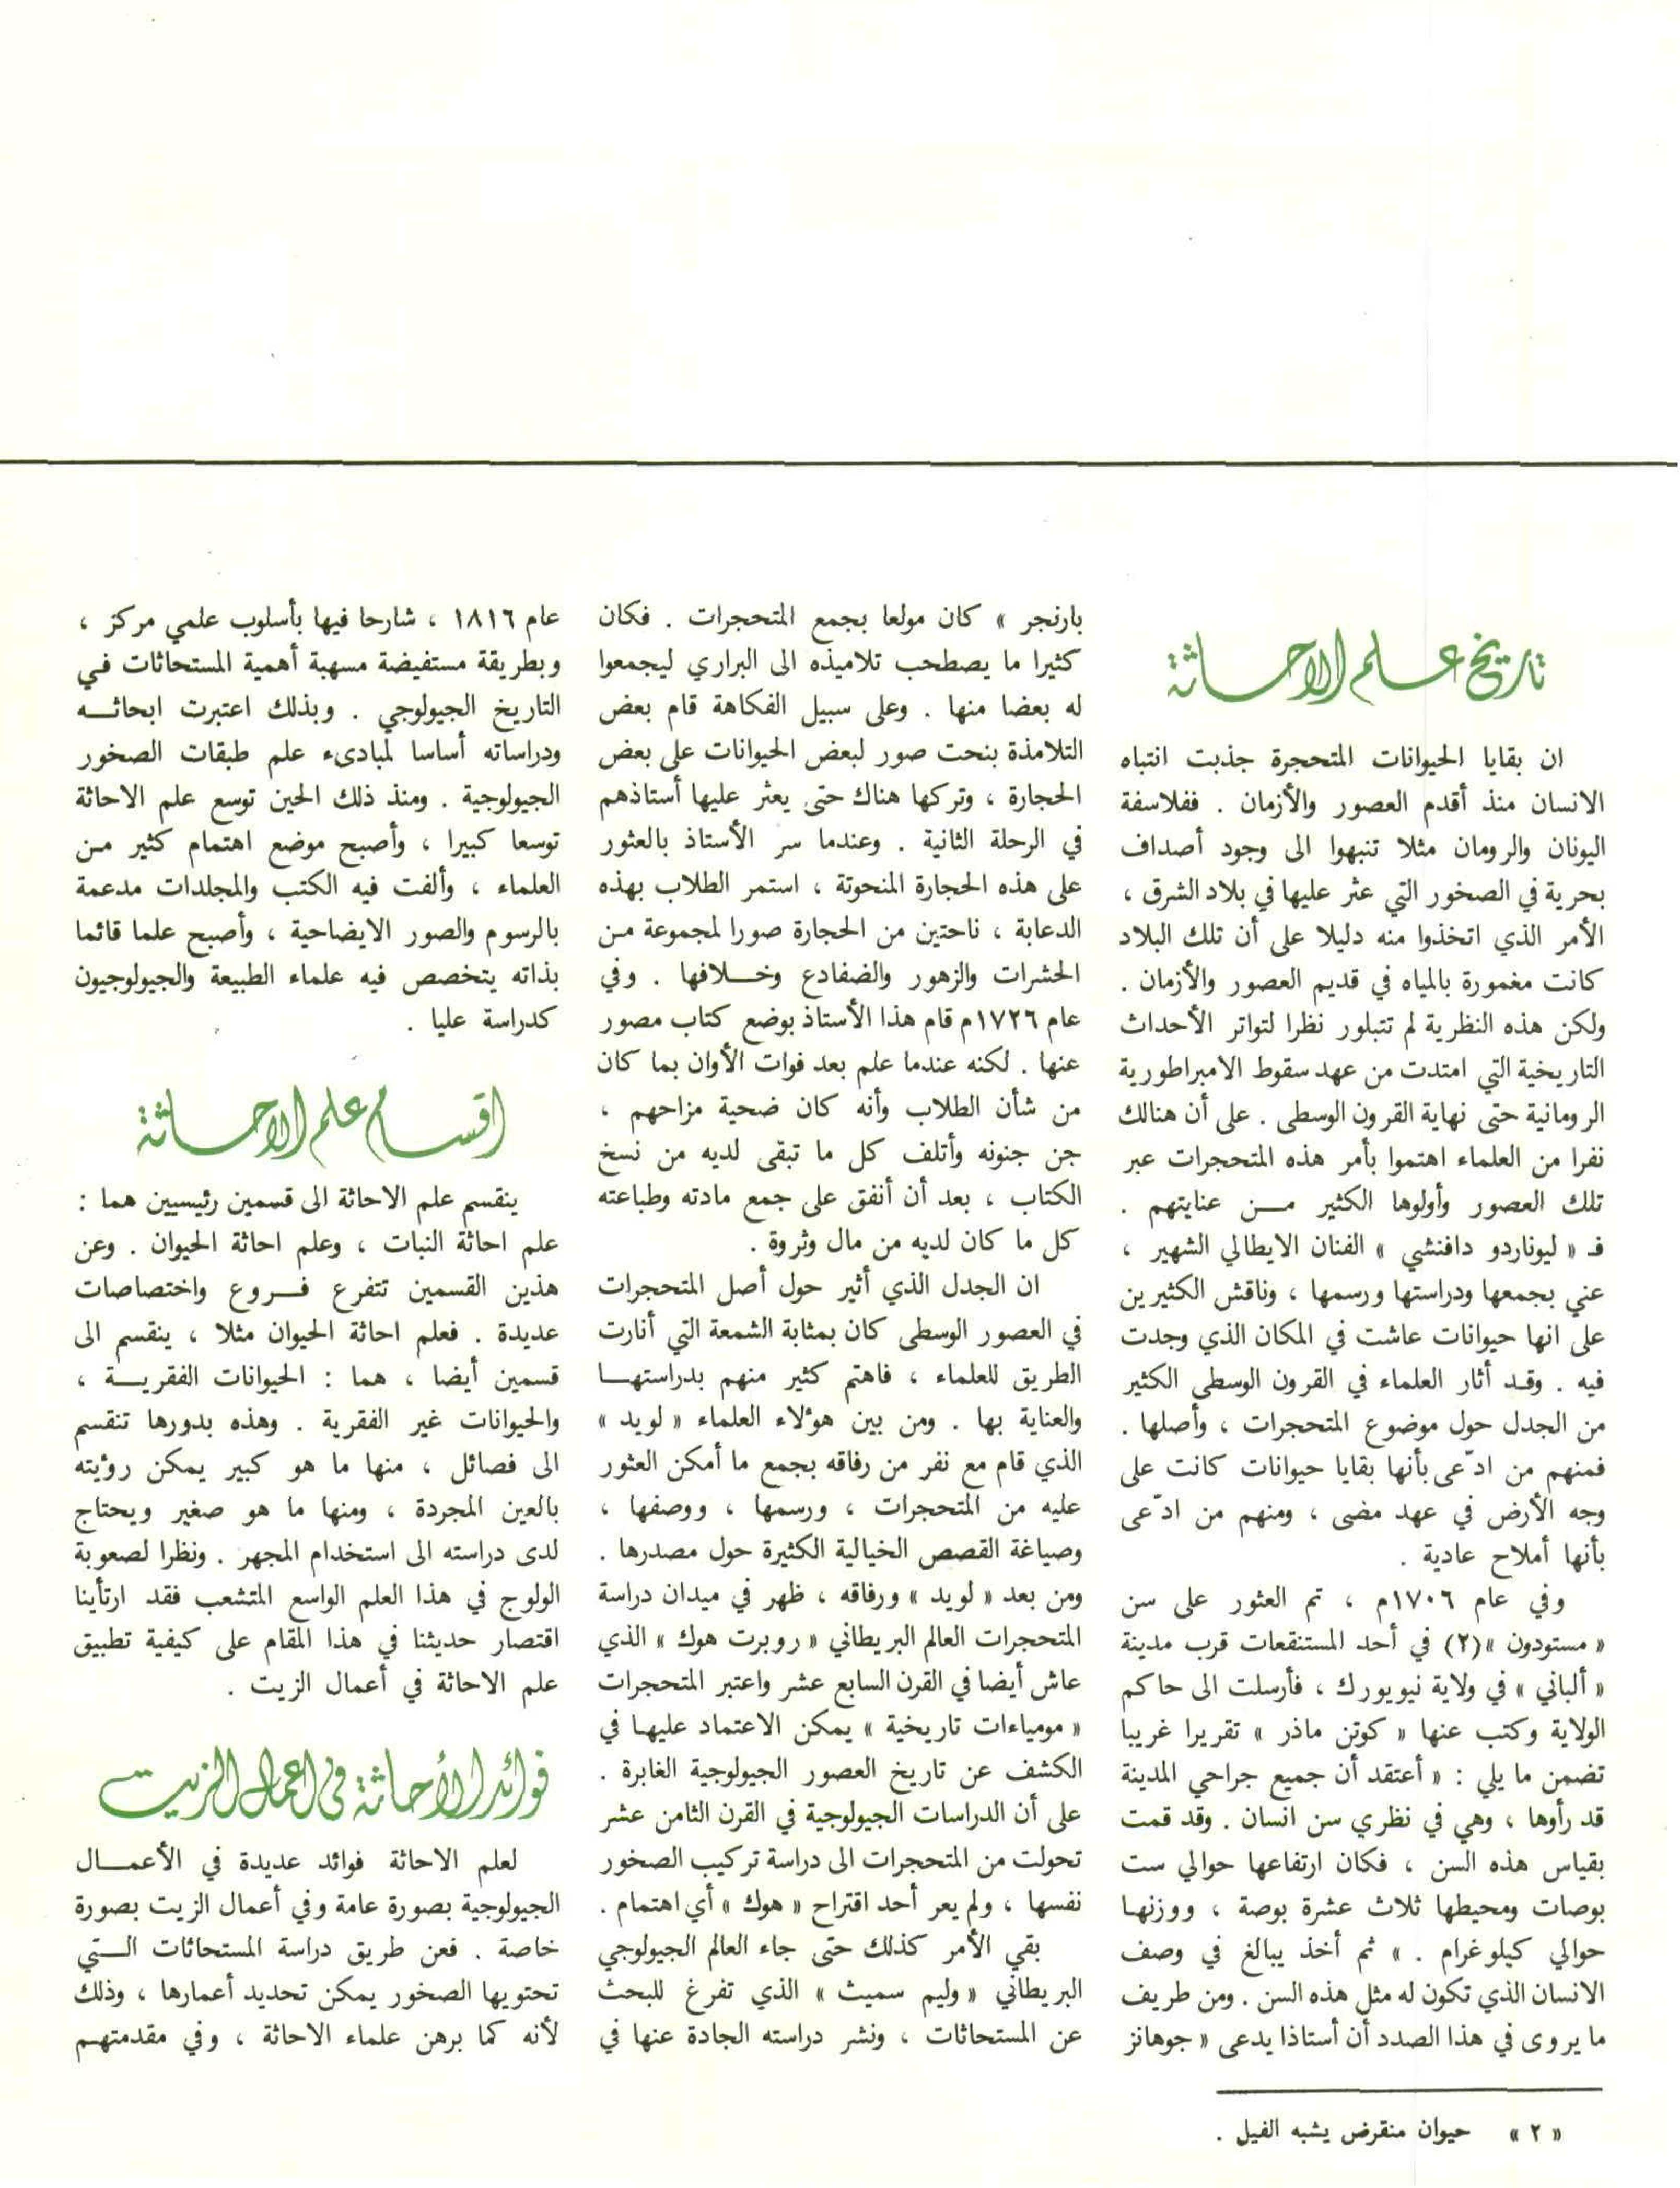 تاريخ علم الاحاثة
ان بقايا الحيوانات المتحجرة جذبت انتباه
الانسان منذ أقدم العصور والأزمان . ففلاسفة
اليونان والرومان مثلا تنبهوا الى وجود أصداف
بحرية في الصخور التي عثر عليها في بلاد الشرق ،
الأمر الذي اتخذوا منه دليلا على أن تلك البلاد
كانت مغمورة بالمياه في قديم العصور والأزمان .
ولكن هذه النظرية لم تتبلور نظرا لتواتر الأحداث
التاريخية التي امتدت من عهد سقوط الامبراطورية
الرومانية حتى نهاية القرون الوسطى . على أن هنالك
نفرا من العلماء اهتموا بأمر هذه المتحجرات عبر
تلك العصور وأولوها الكثير مــن عنايتهم .
فـ « ليوناردو دافنشي » الفنان الايطالي الشهير ،
عني بجمعها ودراستها ورسمها ، وناقش الكثيرين
على انها حيوانات عاشت في المكان الذي وجدت
فيه . وقد أثار العلماء في القرون الوسطى الكثير
من الجدل حول موضوع المتحجرات ، وأصلها .
فمنهم من ادّعى بأنها بقايا حيوانات كانت على
وجه الأرض في عهد مضى ، ومنهم من ادّعى
بأنها أملاح عادية .
وفي عام ١٧٠٦م ، تم العثور على سن
« مستودون »(٢) في أحد المستنقعات قرب مدينة
« ألباني » في ولاية نيويورك ، فأرسلت الى حاكم
الولاية وكتب عنها « كوتن ماذر » تقريرا غريبا
تضمن ما يلي : « أعتقد أن جميع جراحي المدينة
قد رأوها ، وهي في نظري سن انسان . وقد قمت
بقياس هذه السن ، فكان ارتفاعها حوالي ست
بوصات ومحيطها ثلاث عشرة بوصة ، ووزنها
حوالي كيلو غرام . » ثم أخذ يبالغ في وصف
الانسان الذي تكون له مثل هذه السن . ومن طريف
ما يروى في هذا الصدد أن أستاذا يدعى « جوهانز
« ٢ » حيوان منقرض يشبه الفيل .
بارنجر » كان مولعا بجمع المتحجرات . فكان
كثيرا ما يصطحب تلاميذه الى البراري ليجمعوا
له بعضا منها . وعلى سبيل الفكاهة قام بعض
التلامذة بنحت صور لبعض الحيوانات على بعض
الحجارة ، وتركها هناك حتى يعثر عليها أستاذهم
في الرحلة الثانية . وعندما سر الأستاذ بالعثور
على هذه الحجارة المنحوتة ، استمر الطلاب بهذه
الدعابة ، ناحتين من الحجارة صورا لمجموعة من
الحشرات والزهور والضفادع وخــلافها . وفي
عام ١٧٢٦م قام هذا الأستاذ بوضع كتاب مصور
عنها . لكنه عندما علم بعد فوات الأوان بما كان
من شأن الطلاب وأنه كان ضحية مزاحهم ،
جن جنونه وأتلف كل ما تبقى لديه من نسخ
الكتاب ، بعد أن أنفق على جمع مادته وطباعته
كل ما كان لديه من مال وثروة .
ان الجدل الذي أثير حول أصل المتحجرات
في العصور الوسطى كان بمثابة الشمعة التي أنارت
الطريق للعلماء ، فاهتم كثير منهم بدراستهــا
والعناية بها . ومن بين هؤلاء العلماء « لويد »
الذي قام مع نفر من رفاقه بجمع ما أمكن العثور
عليه من المتحجرات ، ورسمها ، ووصفها ،
وصياغة القصص الخيالية الكثيرة حول مصدرها .
ومن بعد « لويد » ورفاقه ، ظهر في ميدان دراسة
المتحجرات العالم البريطاني « روبرت هوك » الذي
عاش أيضا في القرن السابع عشر واعتبر المتحجرات
« مومياءات تاريخية » يمكن الاعتماد عليها في
الكشف عن تاريخ العصور الجيولوجية الغابرة .
على أن الدراسات الجيولوجية في القرن الثامن عشر
تحولت من المتحجرات الى دراسة تركيب الصخور
نفسها ، ولم يعر أحد اقتراح « هوك » أي اهتمام .
بقي الأمر كذلك حتى جاء العالم الجيولوجي
البريطاني « وليم سميث » الذي تفرغ للبحث
عن المستحاثات ، ونشر دراسته الجادة عنها في
عام ١٨١٦ ، شارحا فيها بأسلوب علمي مركز ،
وبطريقة مستفيضة مسهبة أهمية المستحاثات في
التاريخ الجيولوجي . وبذلك اعتبرت ابحاثــه
ودراساته أساسا لمبادىء علم طبقات الصخور
الجيولوجية . ومنذ ذلك الحين توسع علم الاحاثة
توسعا كبيرا ، وأصبح موضع اهتمام كثير من
العلماء ، وألفت فيه الكتب والمجلدات مدعمة
بالرسوم والصور الايضاحية ، وأصبح علما قائما
بذاته يتخصص فيه علماء الطبيعة والجيولوجيون
كدراسة عليا .
اقسام علم الاحاثة
ينقسم علم الاحاثة الى قسمين رئيسيين هما :
علم احاثة النبات ، وعلم احاثة الحيوان . وعن
هذين القسمين تتفرع فــروع واختصاصات
عديدة . فعلم احاثة الحيوان مثلا ، ينقسم الى
قسمين أيضا ، هما : الحيوانات الفقريــة ،
والحيوانات غير الفقرية . وهذه بدورها تنقسم
الى فصائل ، منها ما هو كبير يمكن رؤيته
بالعين المجردة ، ومنها ما هو صغير ويحتاج
لدى دراسته الى استخدام المجهر . ونظرا لصعوبة
الولوج في هذا العلم الواسع المتشعب فقد ارتأينا
اقتصار حديثنا في هذا المقام على كيفية تطبيق
علم الاحاثة في أعمال الزيت .
فوائد الأحاثة في اعمال الزيت
لعلم الاحاثة فوائد عديدة في الأعمــال
الجيولوجية بصورة عامة وفي أعمال الزيت بصورة
خاصة . فعن طريق دراسة المستحاثات الــتي
تحتويها الصخور يمكن تحديد أعمارها ، وذلك
لأنه كما برهن علماء الاحاثة ، وفي مقدمتهم